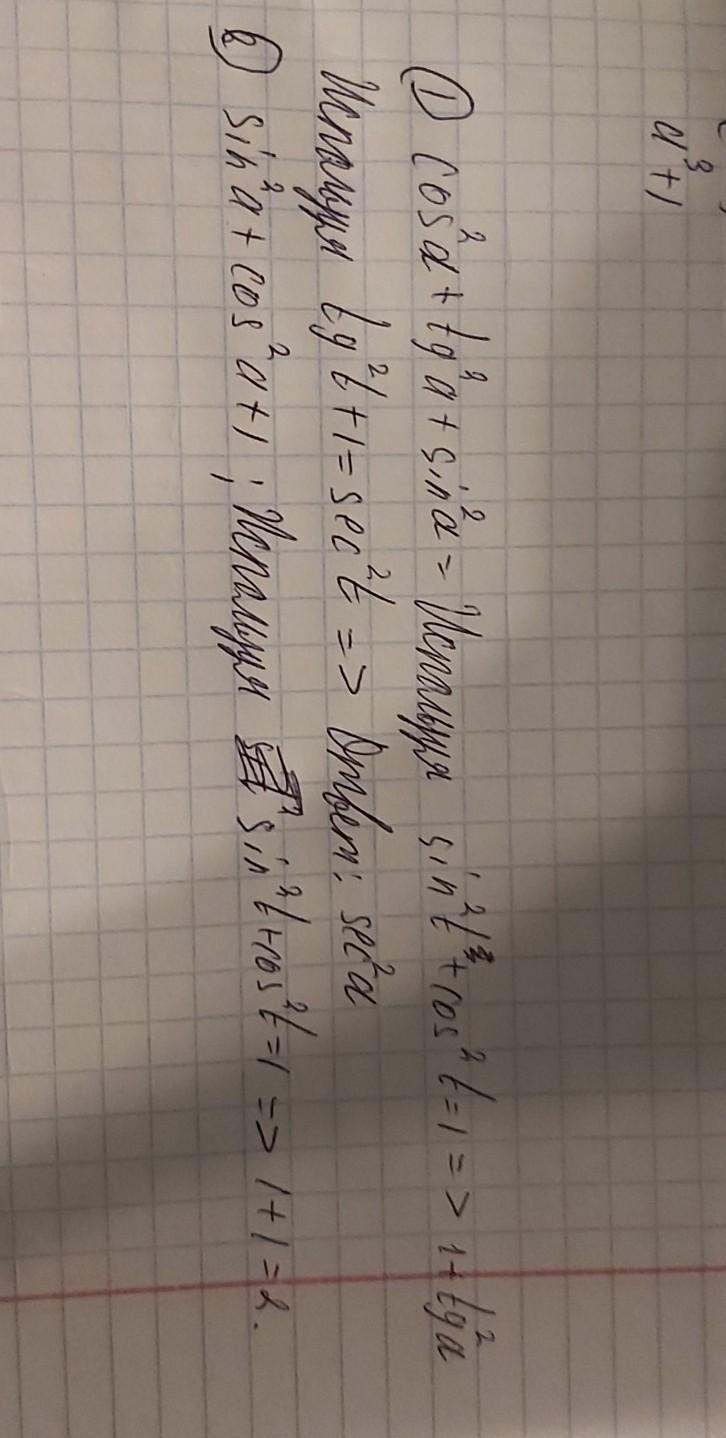 a³+1
① cos²α + tg²α + sin²α = Используя sin²t + cos²t = 1 => 1 + tg²α
Используя tg²t + 1 = sec²t => Ответ: sec²α
б) sin²α + cos²α + 1; Используя sin²t + cos²t = 1 => 1 + 1 = 2.